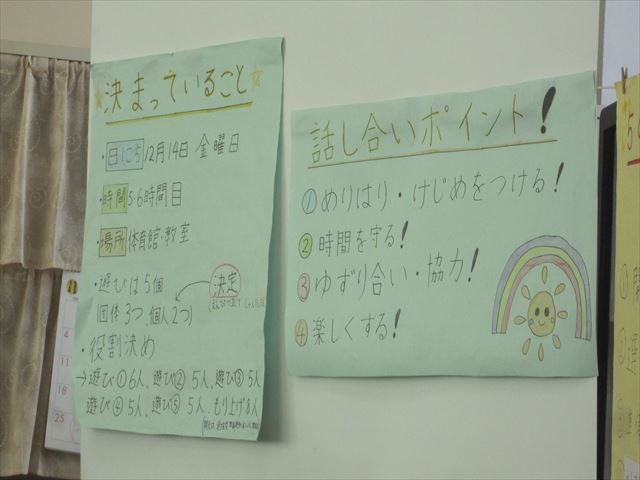 決まっていること
・日にち 12月14日 金曜日
・時間 5・6時間目
・場所 体育館・教室
・遊びは5個
決定
(団体3つ, 個人2つ)
・役割決め
→遊び①6人、遊び② 5人、遊び③ 5人
遊び④ 5人、遊び⑤ 5人、もり上げ8人
話し合いポイント!
① めりはり・けじめをつける!
② 時間を守る!
③ ゆずり合い・協力!
④ 楽しくする!
4
11
18
25